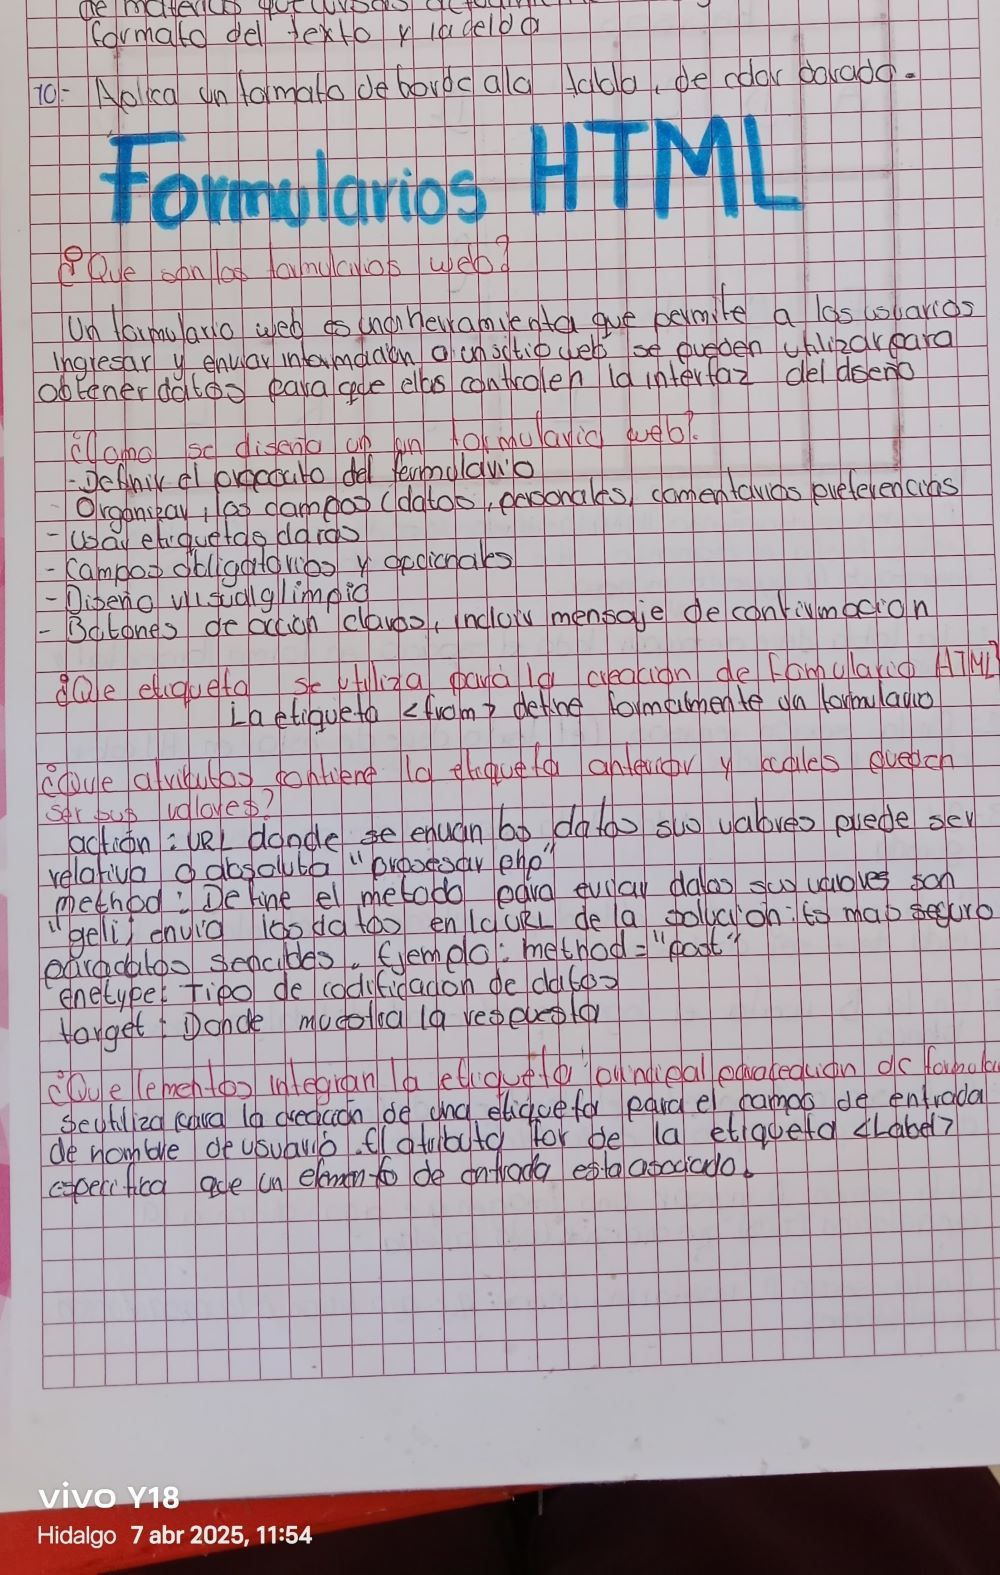 de materias que cursas
formato del texto y la celda
10.- Aplica un formato de borde ala tabla, de color dorado.
Formularios HTML
¿Que son los formularios web?
Un formulario web es una herramienta que permite a los usuarios
Ingresar y enviar informacion a un sitio web se pueden utilizar para
obtener datos para que ellos controlen la interfaz del diseño
¿Como se diseña un un formulario web?
-Definir el proposito del formulario
- Organizar, los campos (datos, personales, comentarios preferencias
- Usar etiquetas claras
- Campos obligatorios y opcionales
- Diseño visual y limpio
- Botones de accion claros, incluir mensaje de confirmacion
¿Que etiqueta se utiliza para la creacion de Formulario HTML?
La etiqueta <from> define formalmente un formulario
¿Que atributos contiene la etiqueta anterior y cuales pueden
ser sus valores?
action: URL donde se envian los datos sus valores puede ser
relativa o absoluta "procesar php"
method: Define el metodo para enviar datos sus valores son
envia los datos en la URL de la mas seguro
para datos Ejemplo: method="post"
enetype: Tipo de codificacion de datos
target: Donde muestra la respuesta
¿Que lementos integran la etiqueta principal de formula
se utiliza para la creación de una etiqueta para el campo de entrada
de nombre de usuario. El atributo for de la etiqueta <Label>
especifica que un elemento de entrada esta asociado.
vivo Y18
Hidalgo 7 abr 2025, 11:54